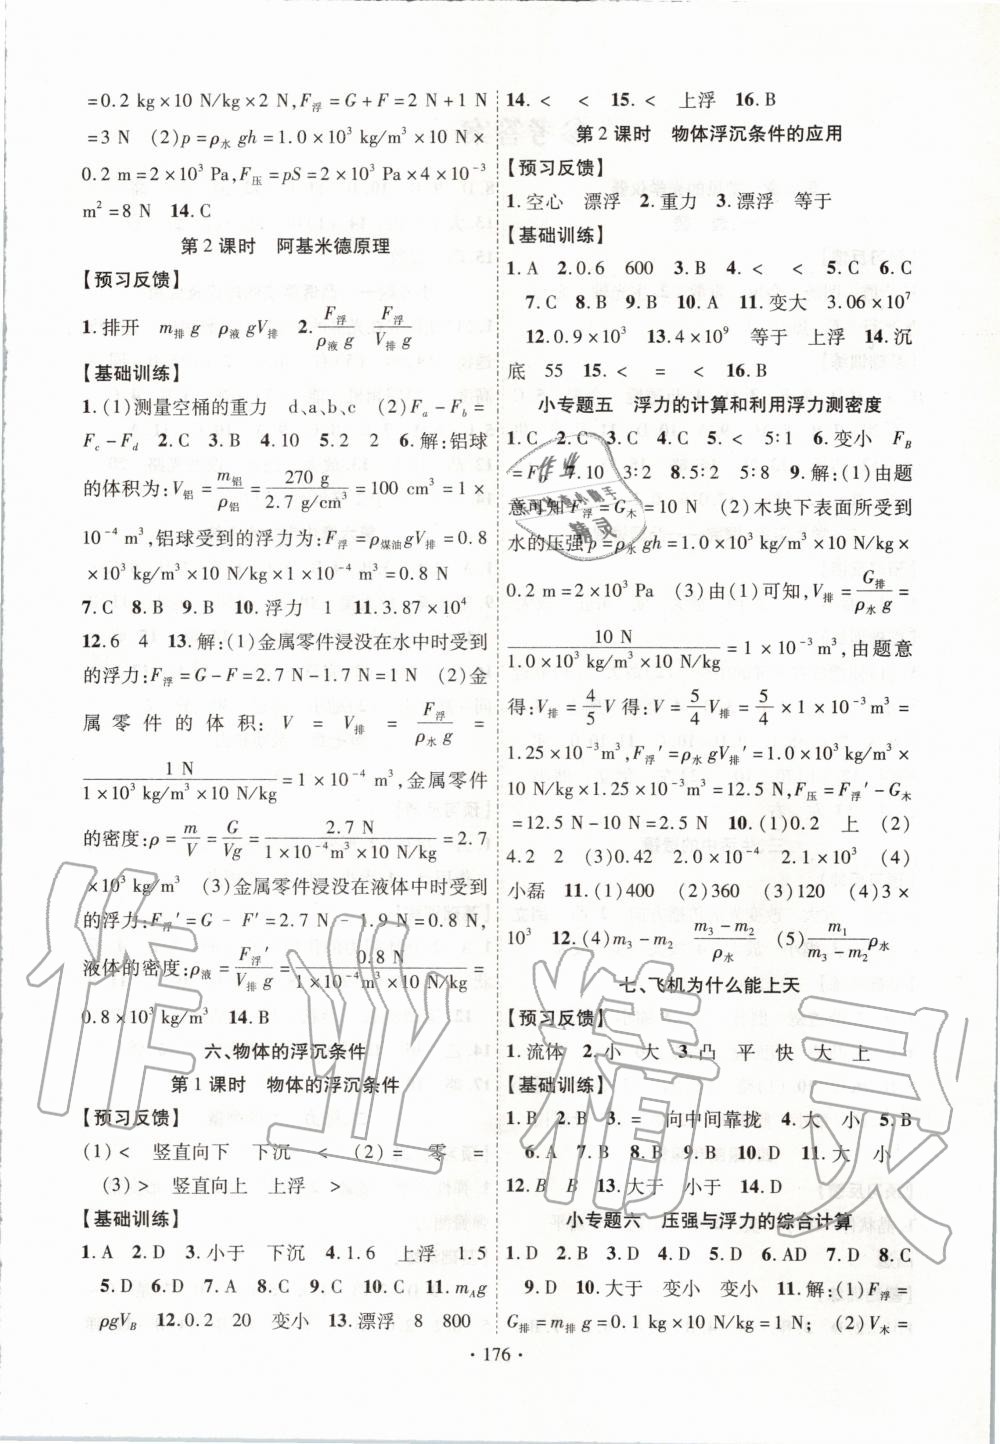 =0.2 kg×10 N/kg×2 N,F浮=G+F=2 N+1 N
=3 N (2)p=ρ水gh=1.0×10³ kg/m³×10 N/kg×
0.2 m=2×10³ Pa,F压=pS=2×10³ Pa×40×10⁻³
m²=8 N 14.C
第2课时 阿基米德原理
【预习反馈】
1.排开 m排g ρ液gV排 2.F浮/ρ液g F浮/V排g
【基础训练】
1.(1)测量空桶的重力 d、a、b、c (2)Fa-Fb=
Fc-Fd 2.C 3.B 4.10 5.2 2 6.解:铝球
的体积为:V铝=m铝/ρ铝=270 g/2.7 g/cm³=100 cm³=1×
10⁻⁴ m³,铝球受到的浮力为:F浮=ρ煤油gV排=0.8
×10³ kg/m³×10 N/kg×1×10⁻⁴ m³=0.8 N
7.C 8.B 9.B 10.浮力 1 11.3.87×10⁴
12.6 4 13.解:(1)金属零件浸没在水中时受到
的浮力:F浮=G-F=2.7 N-1.7 N=1 N (2)金
属零件的体积:V=V排=F浮/ρ水g=
1 N/1×10³ kg/m³×10 N/kg=1×10⁻⁴ m³,金属零件
的密度:ρ=m/V=G/Vg=2.7 N/1×10⁻⁴ m³×10 N/kg=2.7
×10³ kg/m³ (3)金属零件浸没在液体中时受到
的浮力:F浮′=G-F′=2.7 N-1.9 N=0.8 N,
液体的密度:ρ液=F浮′/V排g=0.8 N/1×10⁻⁴ m³×10 N/kg=
0.8×10³ kg/m³ 14.B
六、物体的浮沉条件
第1课时 物体的浮沉条件
【预习反馈】
(1)< 竖直向下 下沉 < (2)= 零 =
(3)> 竖直向上 上浮 >
【基础训练】
1.A 2.D 3.小于 下沉 4.1.6 上浮 1.5
5.D 6.D 7.D 8.C 9.C 10.C 11.mAg
ρgVB 12.0.2 20 变小 13.漂浮 8 800
14.< < 15.< 上浮 16.B
第2课时 物体浮沉条件的应用
【预习反馈】
1.空心 漂浮 2.重力 3.漂浮 等于
【基础训练】
1.A 2.0.6 600 3.B 4.< < 5.C 6.C
7.C 8.B 9.B 10.A 11.变大 3.06×10⁷
12.0.9×10³ 13.4×10⁹ 等于 上浮 14.沉
底 55 15.< = < 16.B
小专题五 浮力的计算和利用浮力测密度
1.C 2.C 3.C 4.< < 5∶1 6.变小 FB
=F 7.10 3∶2 8.5∶2 5∶8 9.解:(1)由题
意可知F浮=G木=10 N (2)木块下表面所受到
水的压强p=ρ水gh=1.0×10³ kg/m³×10 N/kg×
0.2 m=2×10³ Pa (3)由(1)可知,V排=G排/ρ水g=
10 N/1.0×10³ kg/m³×10 N/kg=1×10⁻³ m³,由题意
得:V排=4/5V得:V=5/4V排=5/4×1×10⁻³ m³=
1.25×10⁻³ m³,F浮′=ρ水gV排′=1.0×10³ kg/m³×
10 N/kg×1.25×10⁻³ m³=12.5 N,F压=F浮′-G木
=12.5 N-10 N=2.5 N 10.(1)0.2 上 (2)
4.2 2 (3)0.42 2.0×10⁻⁴ 3.1×10³ (4)
小磊 11.(1)400 (2)360 (3)120 (4)3×
10³ 12.(4)m3-m2 m3-m2/ρ水 (5)m1/m3-m2ρ水
七、飞机为什么能上天
【预习反馈】
1.流体 2.小 大 3.凸 平 快 大 上
【基础训练】
1.B 2.B 3.= 向中间靠拢 4.大 小 5.B
6.A 7.B 8.B 9.B 10.D 11.大 小
12.B B 13.大于 小于 14.D
小专题六 压强与浮力的综合计算
1.D 2.B 3.C 4.C 5.D 6.AD 7.D 8.C
9.D 10.大于 变小 变小 11.解:(1)F浮=
G排=m排g=0.1 kg×10 N/kg=1 N; (2)V木=
·176·
作业精灵
作业
精灵